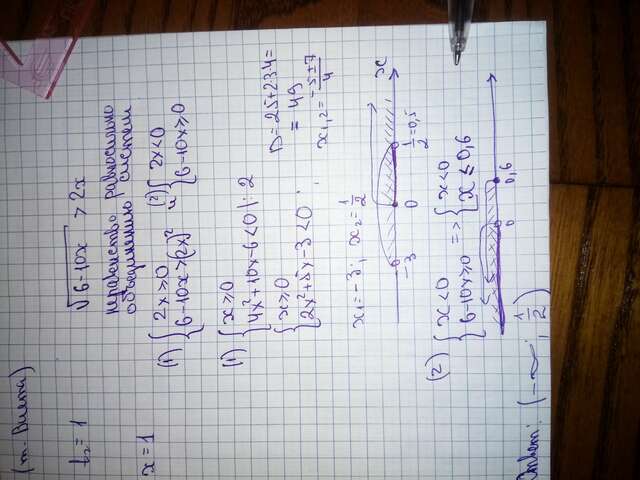 (т. Виета)
t₂ = 1
x = 1
√6-10x > 2x
неравенство равносильно
объединению систем
(1) { 2x ≥ 0 и (2) { 2x < 0
{ 6-10x > (2x)² { 6-10x ≥ 0
(1) { x ≥ 0
{ 4x² + 10x - 6 < 0 |: 2
{ x ≥ 0
{ 2x² + 5x - 3 < 0 ;
D = 25 + 234 =
= 49
x₁,₂ = -5±7/4
x₁ = -3; x₂ = 1/2
-3 0 1/2 = 0,5 x
(2) { x < 0 => { x < 0
{ 6-10x ≥ 0 { x ≤ 0,6
0 0,6
Ответ: (-∞; 1/2)